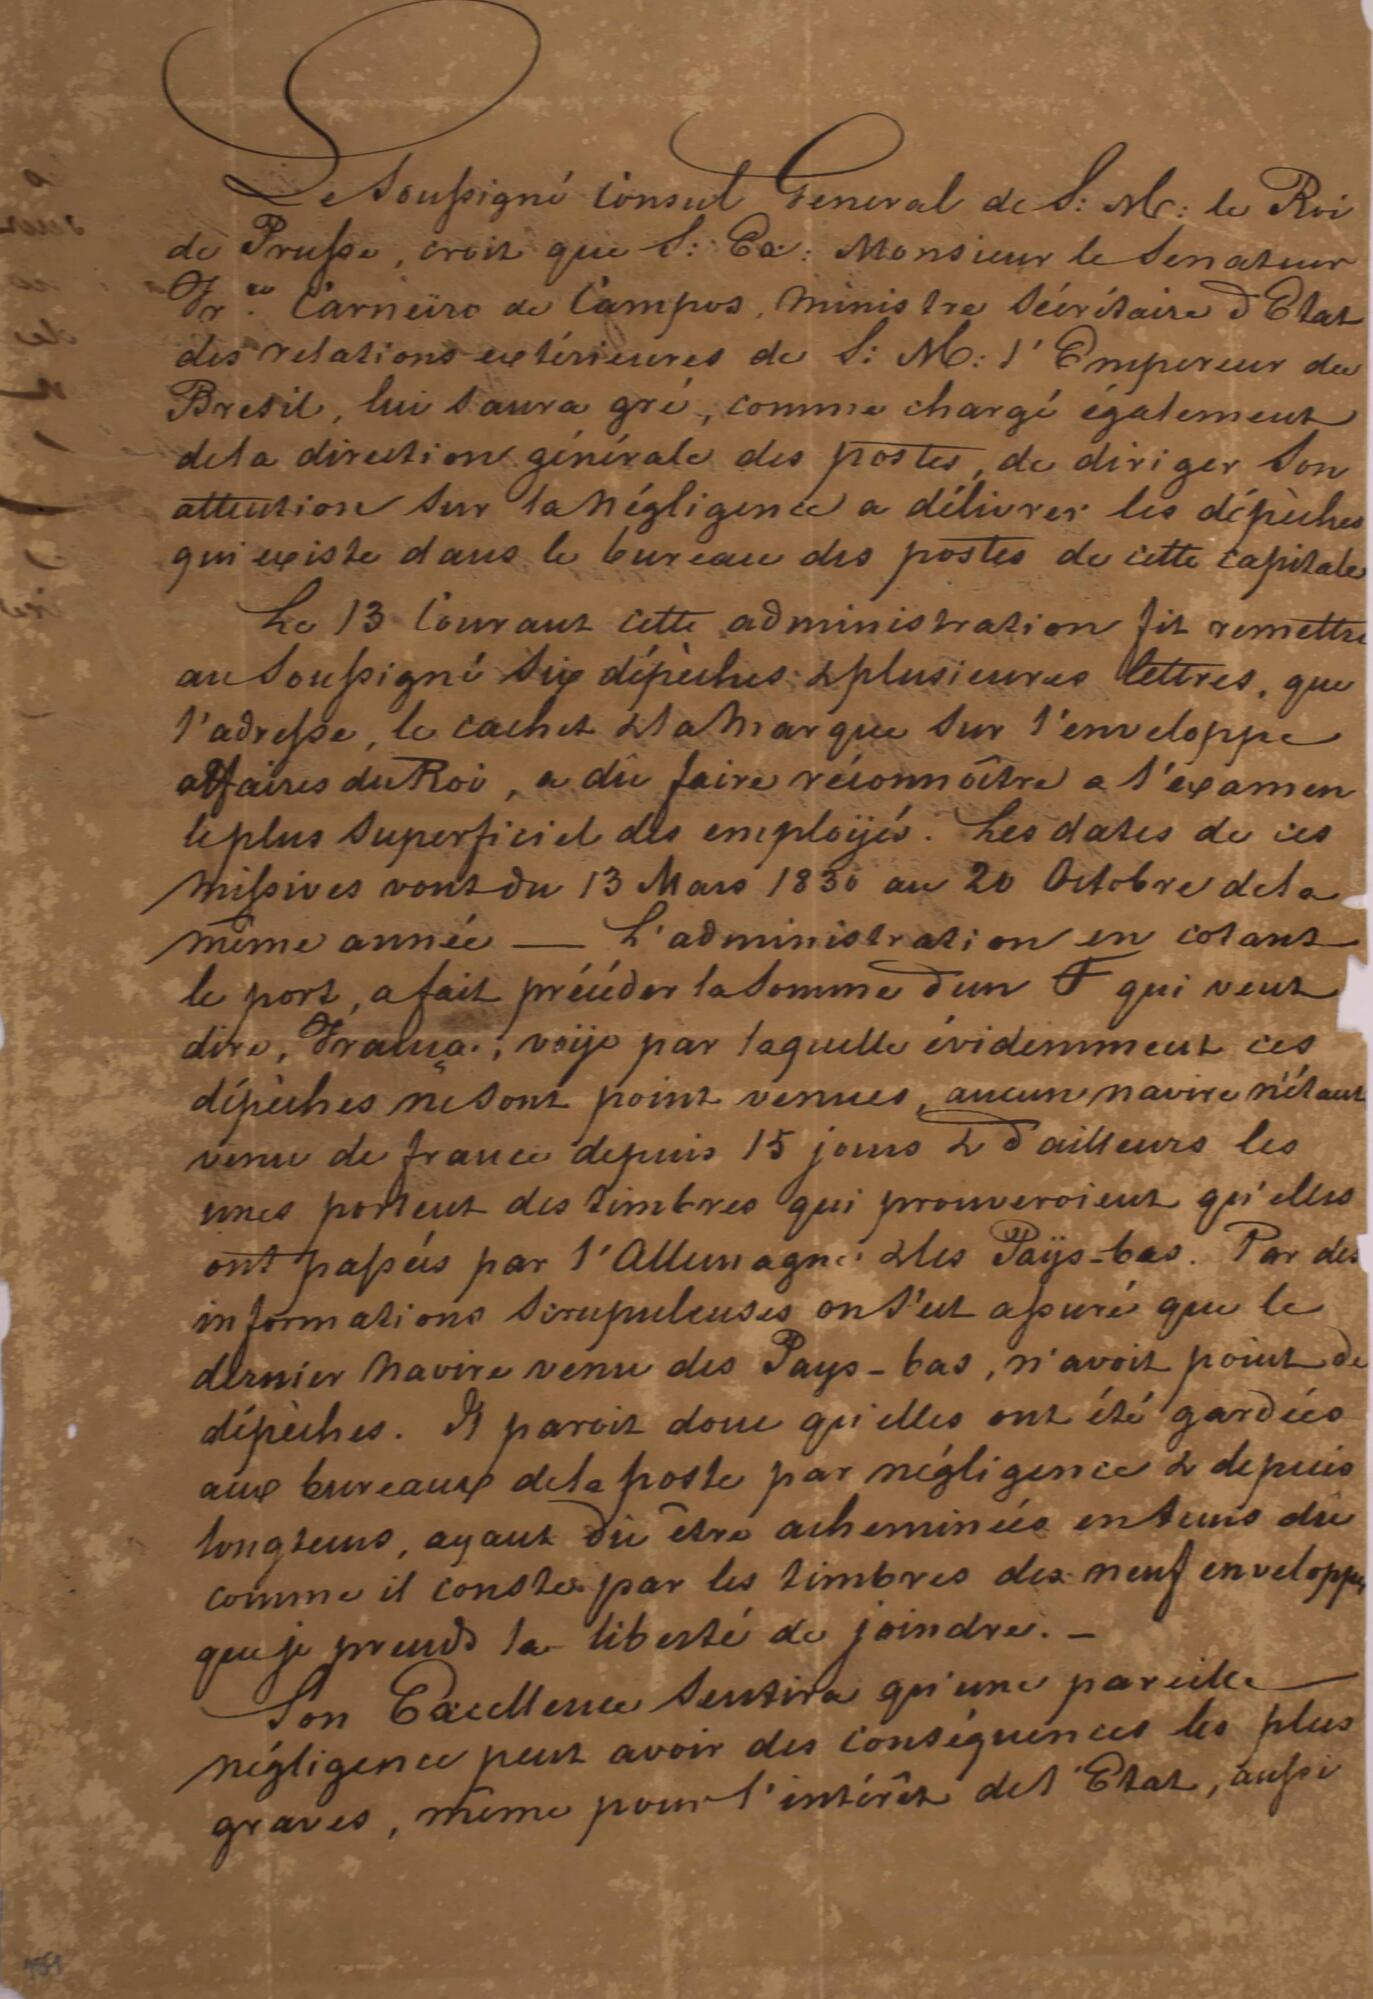 Le Soussigné Consul General de S: M: le Roi
de Prusse, croit que S: Ex: Monsieur le Senateur
Fr.co Carneiro de Campos, Ministre Sécrétaire d'Etat
des relations extérieures de S: M: l'Empereur du
Bresil, lui saura gré, comme chargé également
de la direction générale des postes, de diriger son
attention sur la négligence a délivrer les dépèches
qui existe dans le bureau des postes de cette capitale
Le 13 Courant cette administration fit remettre
au Soussigné Six dépèches & plusieures lettres, que
l'adresse, le cachet & la Marque sur l'enveloppe
affaires du Roi, a dû faire réconnoître a l'examen
le plus superficiel des employés. Les dates de ces
missives vont du 13 Mars 1830 au 20 Octobre de la
même année — L'administration en cotant
le port, a fait précéder la somme d'un F qui veut
dire, França, voije par laquelle évidemment ces
dépèches ne sont point venues, aucun navire n'étant
venu de france depuis 15 jours & d'ailleurs les
unes portent des timbres qui prouveroient qu'elles
ont passées par l'Allemagne & les Paÿs-bas. Par des
informations scrupuleuses on s'est assuré que le
dernier Navire venu des Pays-bas, n'avoit point de
dépèches. Il paroit donc qu'elles ont été gardées
aux bureaux de la poste par négligence & depuis
longtems, ayant dû être acheminées en tems dû
comme il conste par les timbres des neuf enveloppes
que je prends la liberté de joindre. —
Son Excellence Sentira qu'une pareille
négligence peut avoir des conséquences les plus
graves, même pour l'intérêt de l'Etat, aussi